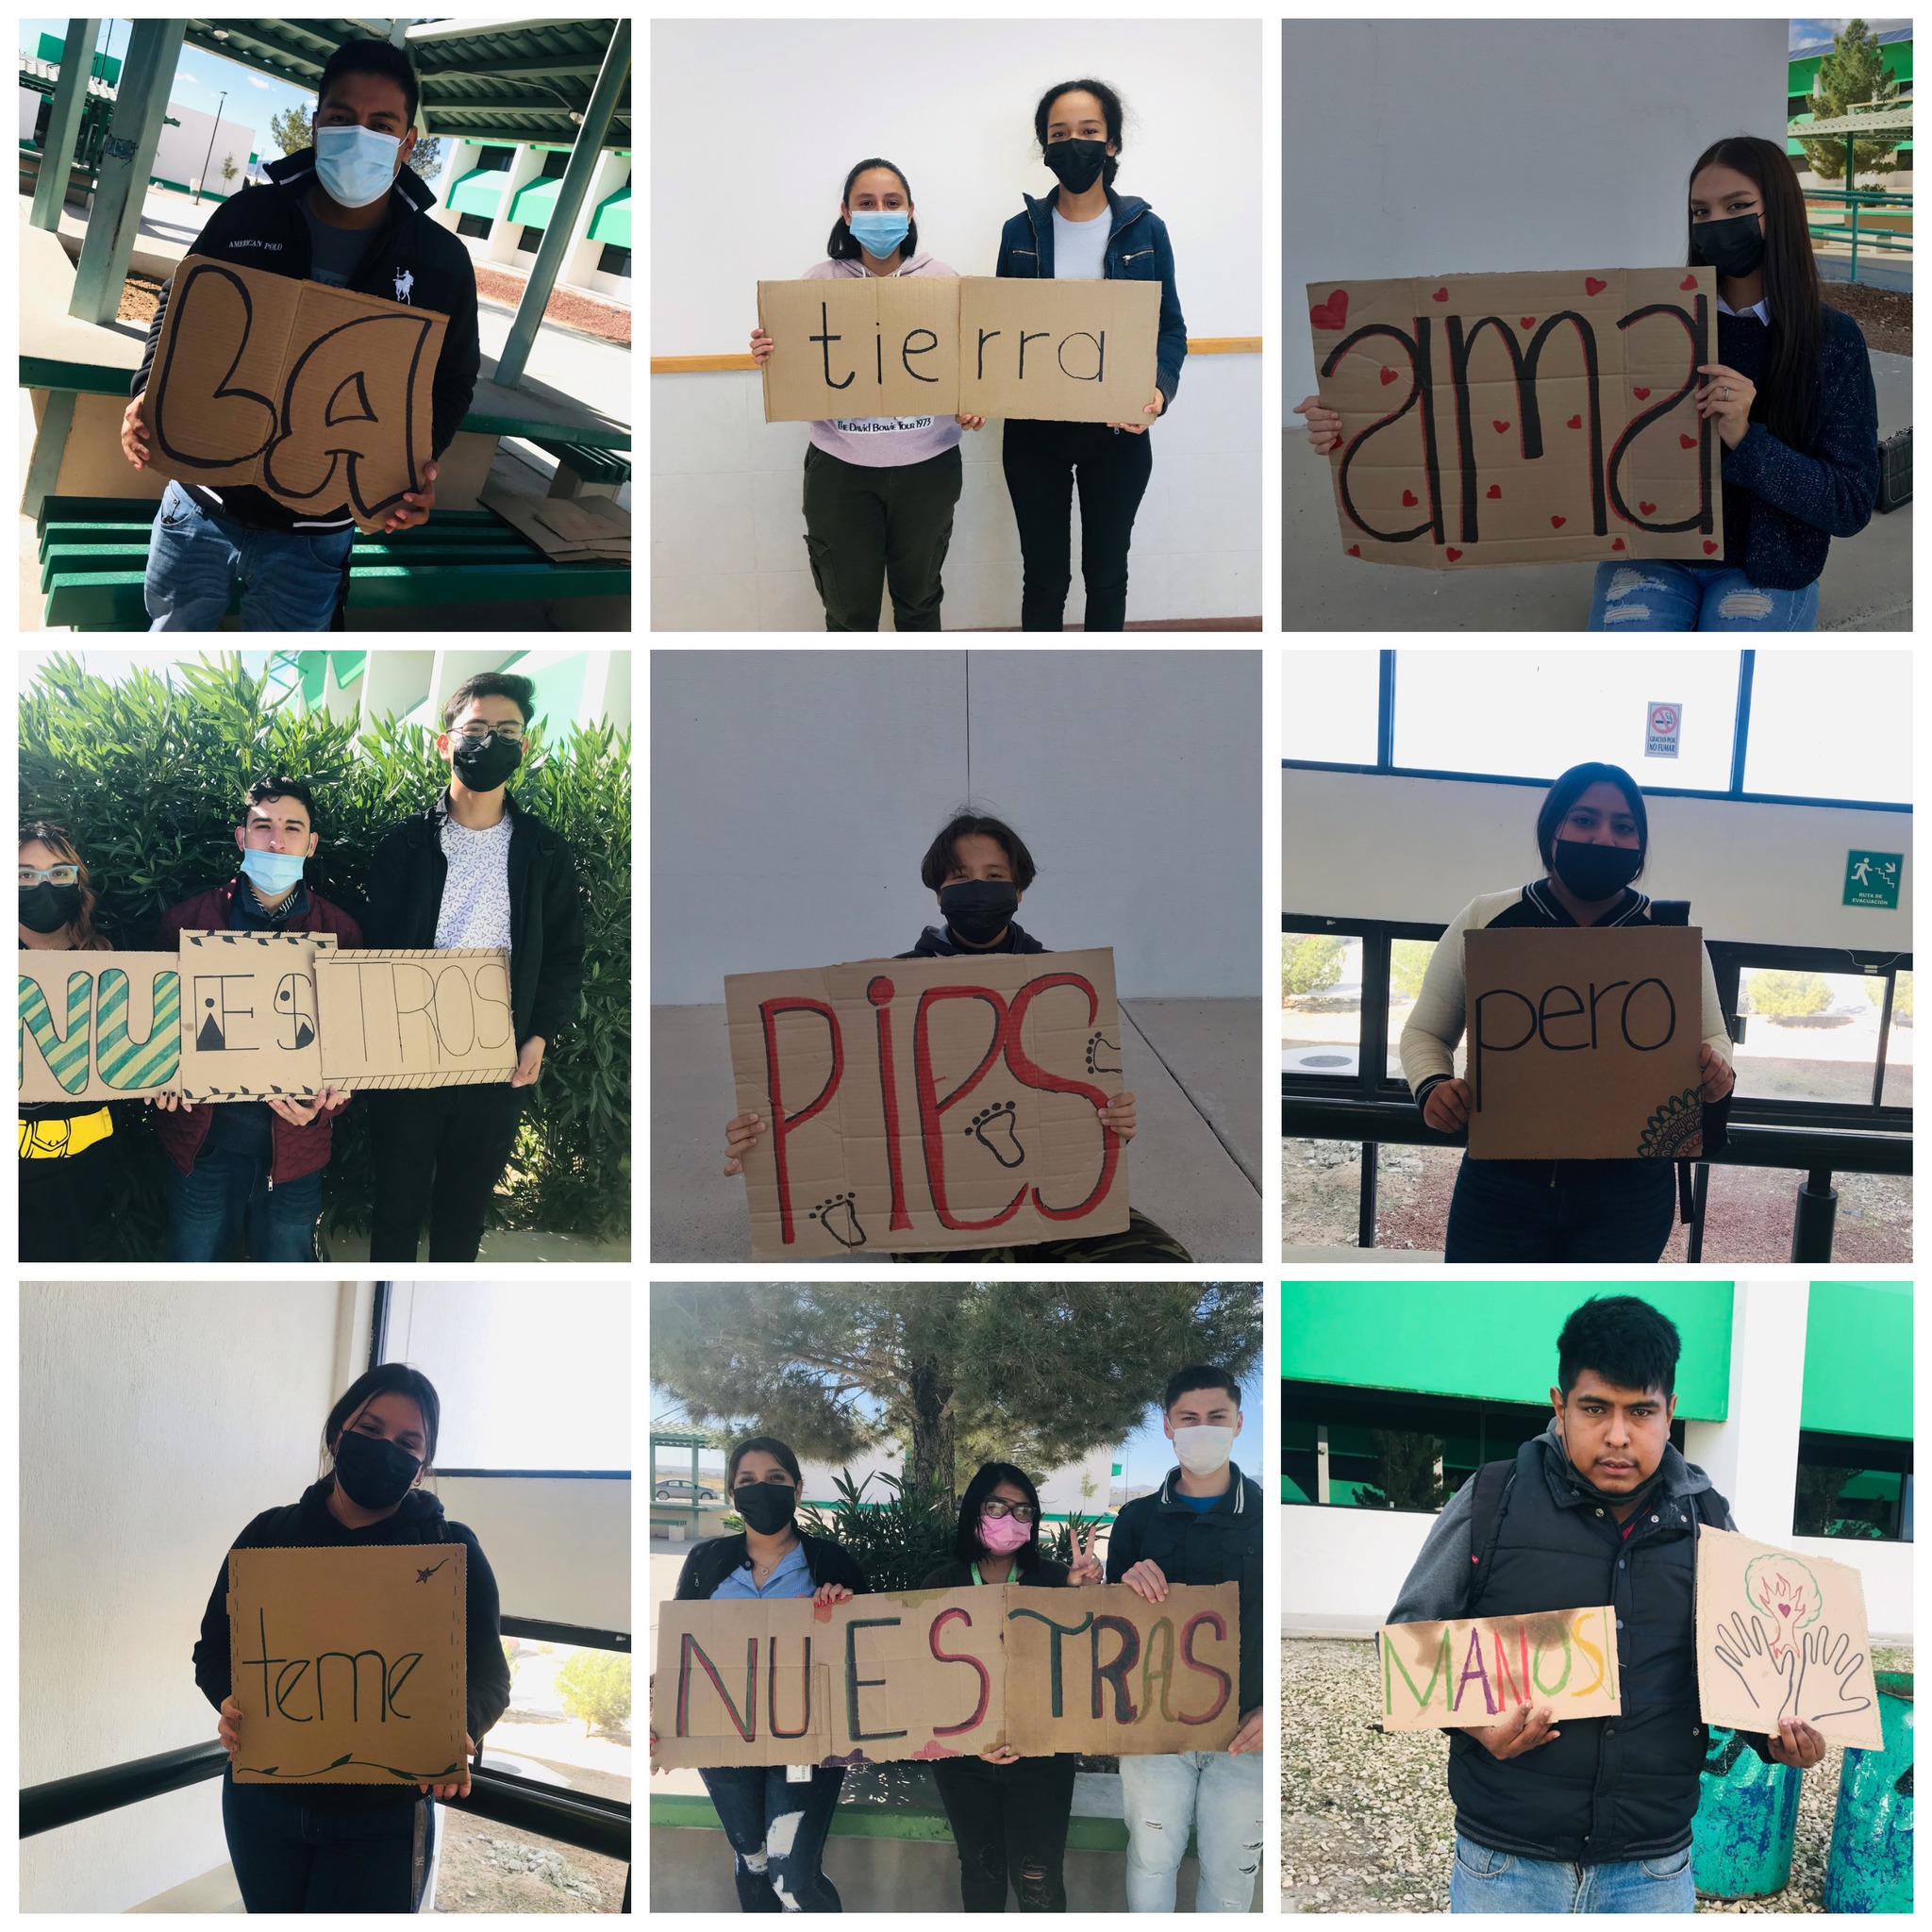 AMERICAN POLO
LA
tierra
The David Bowie Tour 1973
ama
NUESTROS
PIES
GRACIAS POR
NO FUMAR
RUTA DE
EVACUACIÓN
pero
teme
NUESTRAS
MANOS